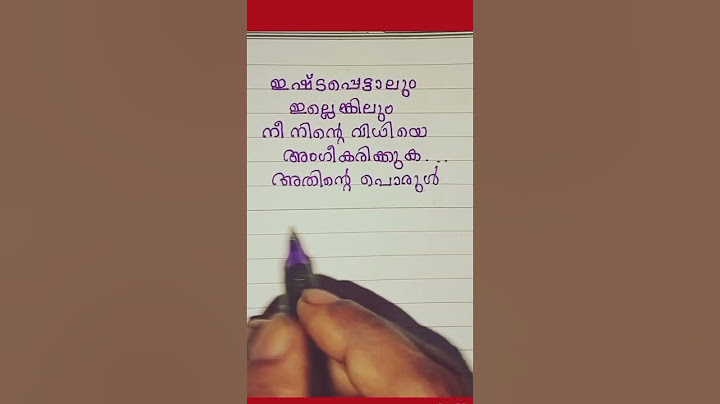 ഇഷ്ടപ്പെട്ടാലും
ഇല്ലെങ്കിലും
നീ നിന്റെ വിധിയെ
അംഗീകരിക്കുക...
അതിന്റെ പൊരുൾ